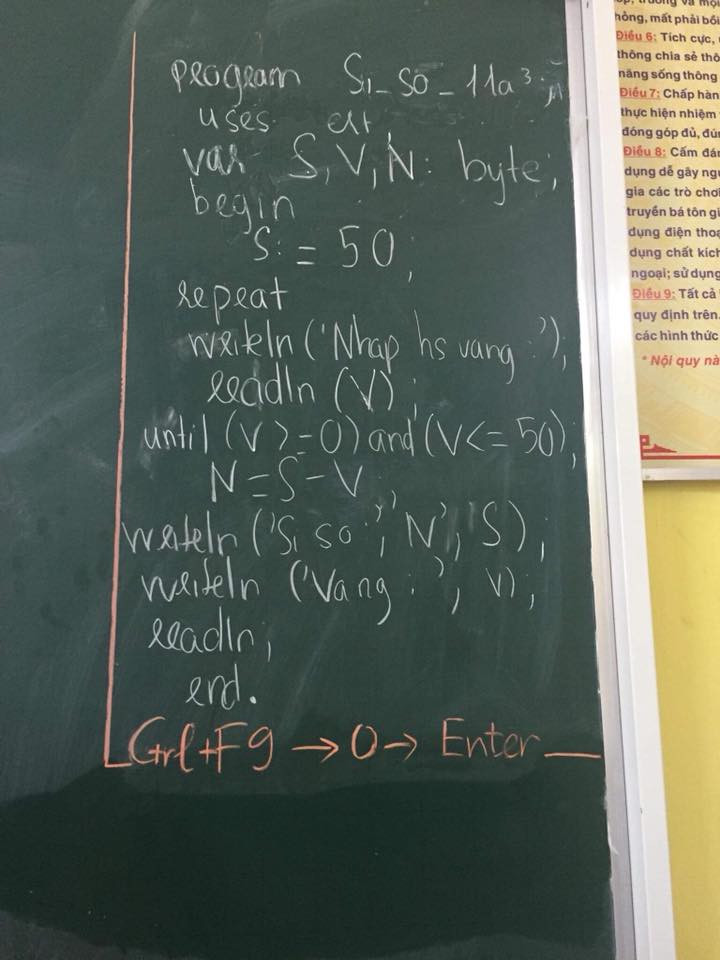 program Si_so_11a3;
uses crt,
var S,V,N: byte;
begin
S:=50;
repeat
writeln('Nhap hs vang:');
readln(V);
until(V>=0)and(V<=50);
N=S-V
writeln('Si so:','N','S);
writeln('Vang:',V);
readln;
end.
Ctrl+F9 → 0 → Enter
hỏng, mất phải bồi
Điều 6: Tích cực,
thông chia sẻ thô
năng sống thông
Điều 7: Chấp hàn
thực hiện nhiệm v
đóng góp đủ, đún
Điều 8: Cấm đán
dụng dễ gây ngu
gia các trò chơi
truyền bá tôn gi
dụng điện thoạ
dụng chất kích
ngoại; sử dụng
Điều 9: Tất cả
quy định trên.
các hình thức
* Nội quy nà